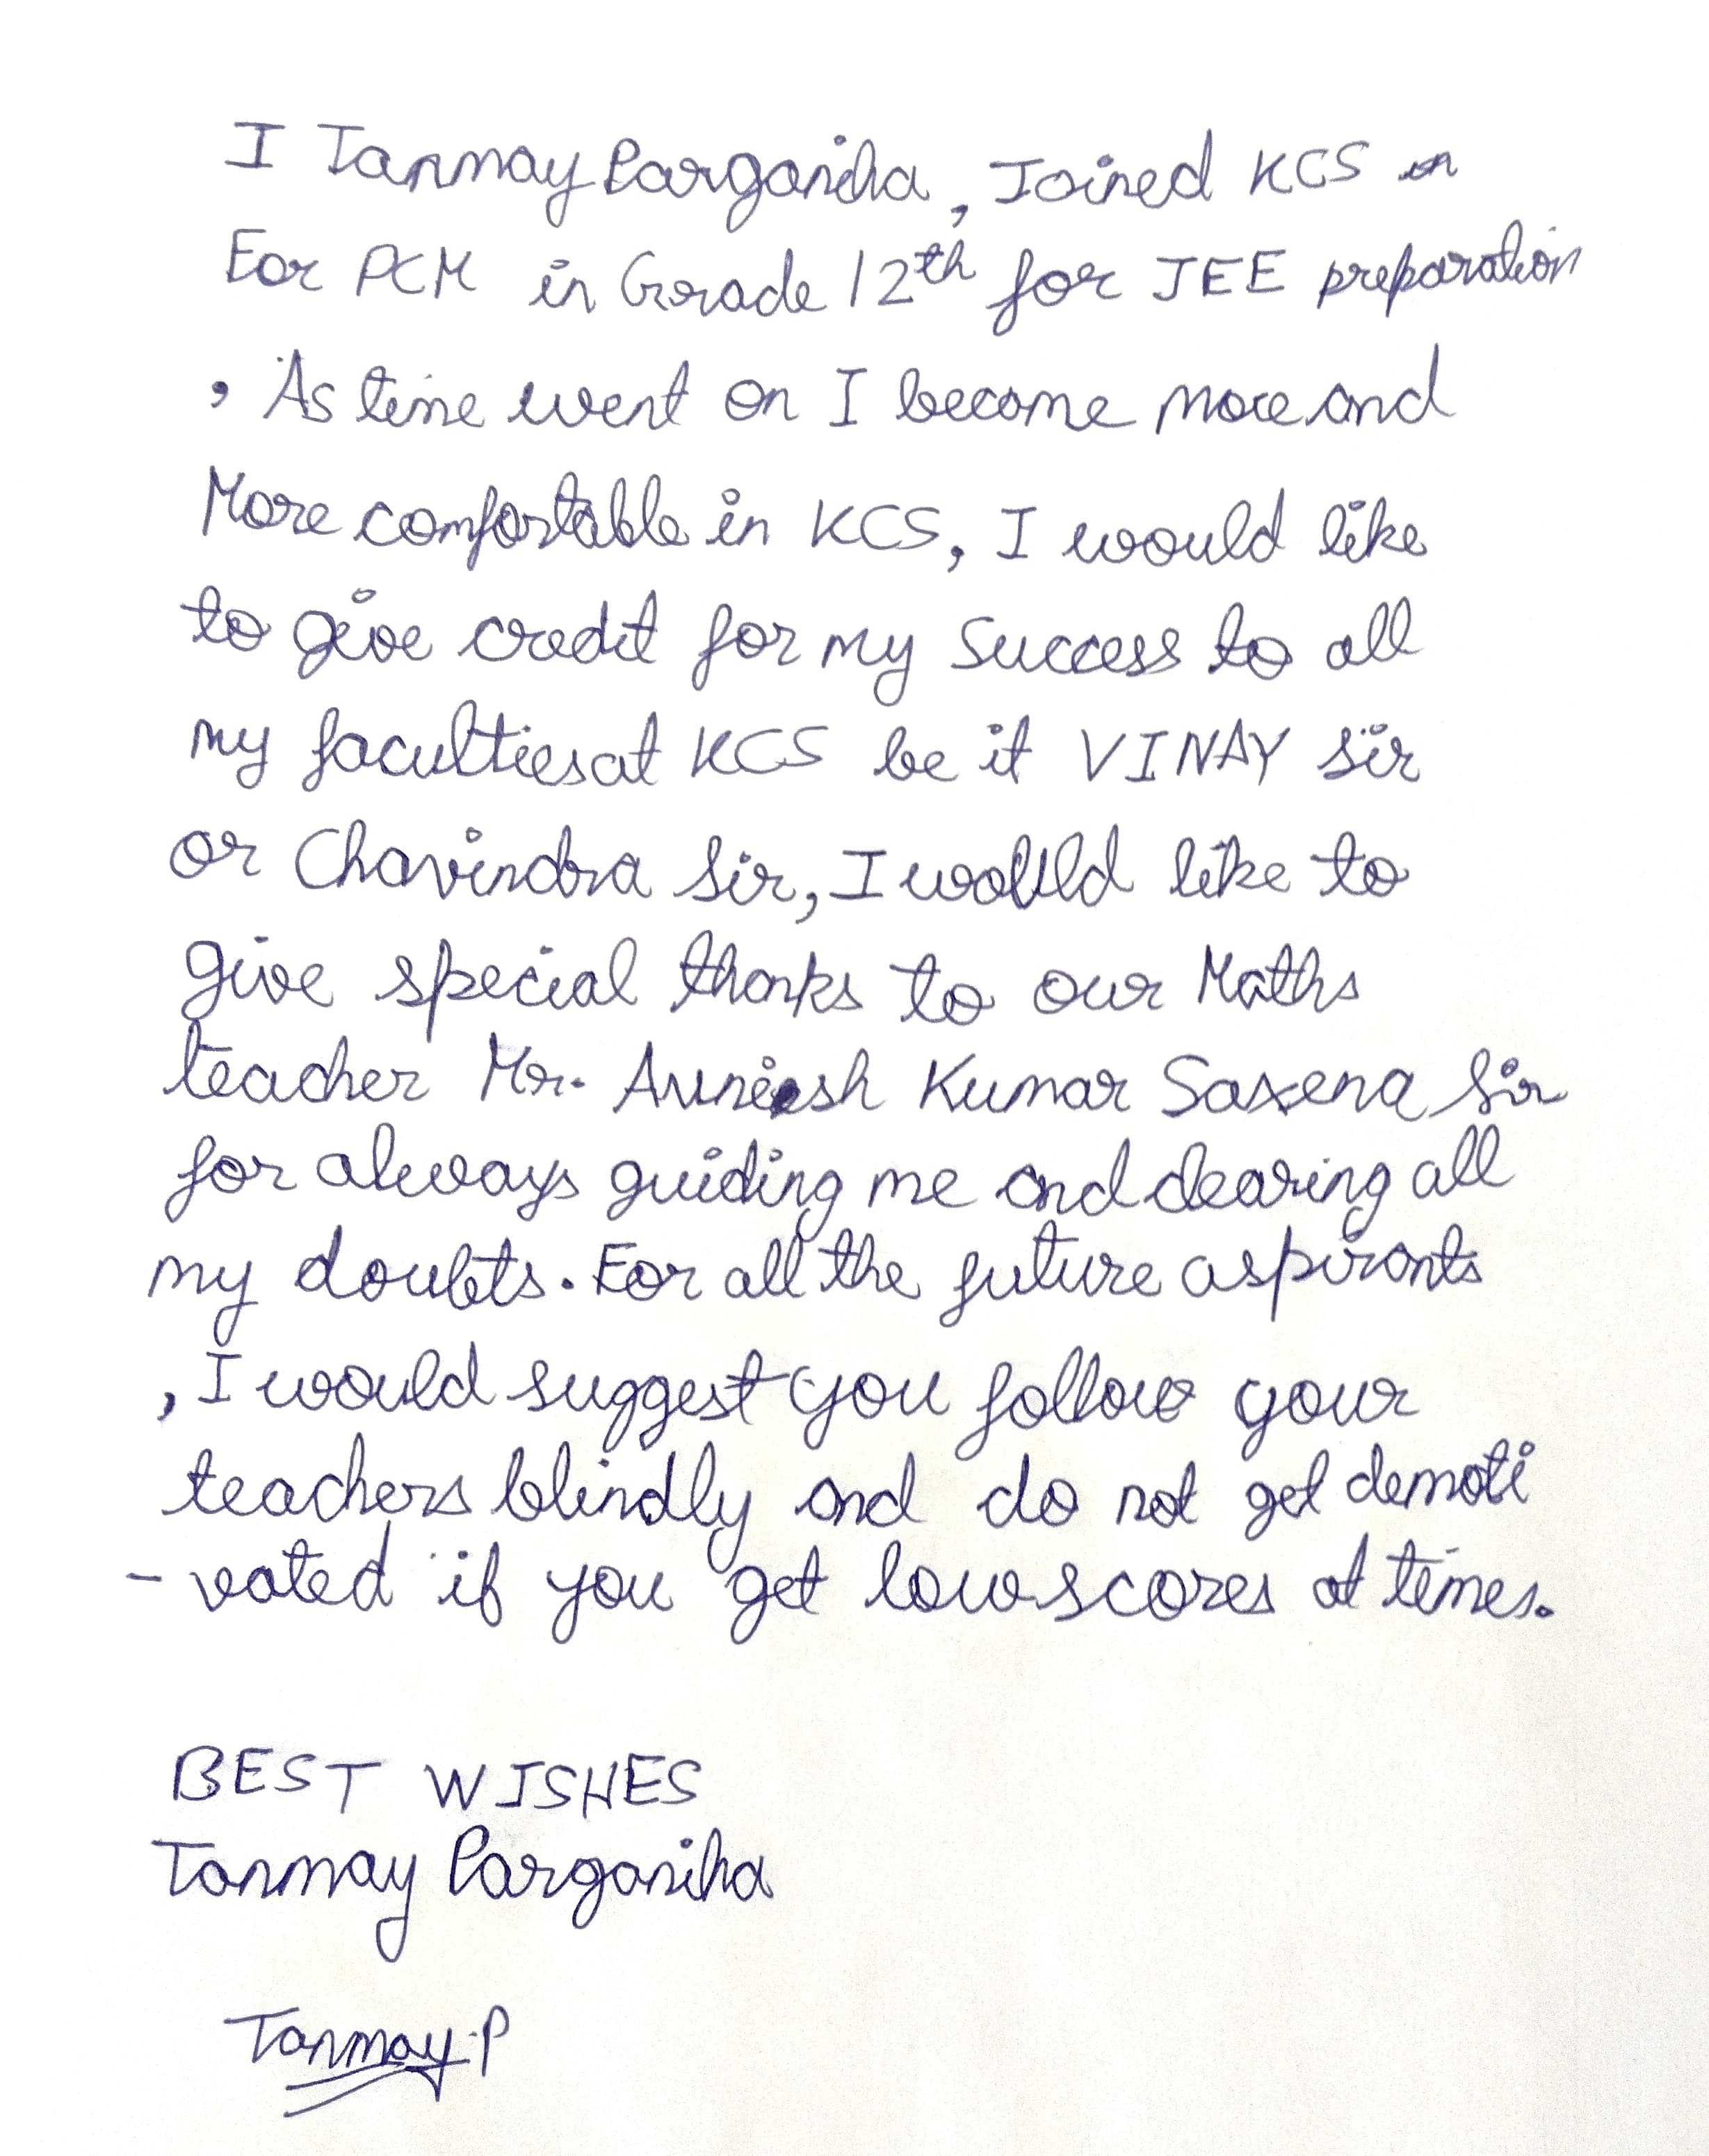 I Tanmay Parganiha, Joined KCS
For PCM in Grade 12th for JEE preparation
, As time went on I become more and
More comfortable in KCS, I would like
to give credit for my Success to all
my faculties at KCS be it VINAY sir
or Chavindra Sir, I would like to
give special thanks to our Maths
teacher Mr. Avneesh Kumar Saxena Sir
for always guiding me and clearing all
my doubts. For all the future aspirants
, I would suggest you follow your
teachers blindly and do not get demoti
- vated if you get low scores at times.
BEST WISHES
Tanmay Parganiha
Tanmay.P